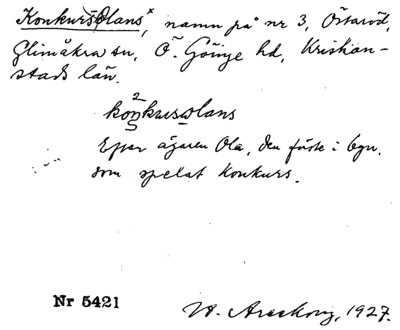 Konkurs Olans x, namn på nr 3, Östaröd,
Glimåkra sn, Ö. Göinge hd, Kristian-
stads län.
2
konkursolans
Efter ägaren Ola, den förste i byn,
som spelat konkurs.
Nr 5421
W. Areskoug, 1927.